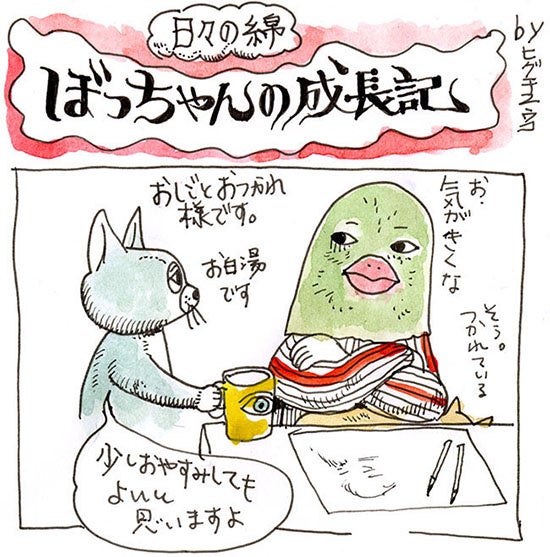 日々の綿
ばっちゃんの成長記
by
ヒグチユウコ
お、
気がきくな
そう。
つかれている
おしごとおつかれ
様です。
お白湯
です
少しおやすみしても
よいと
思いますよ